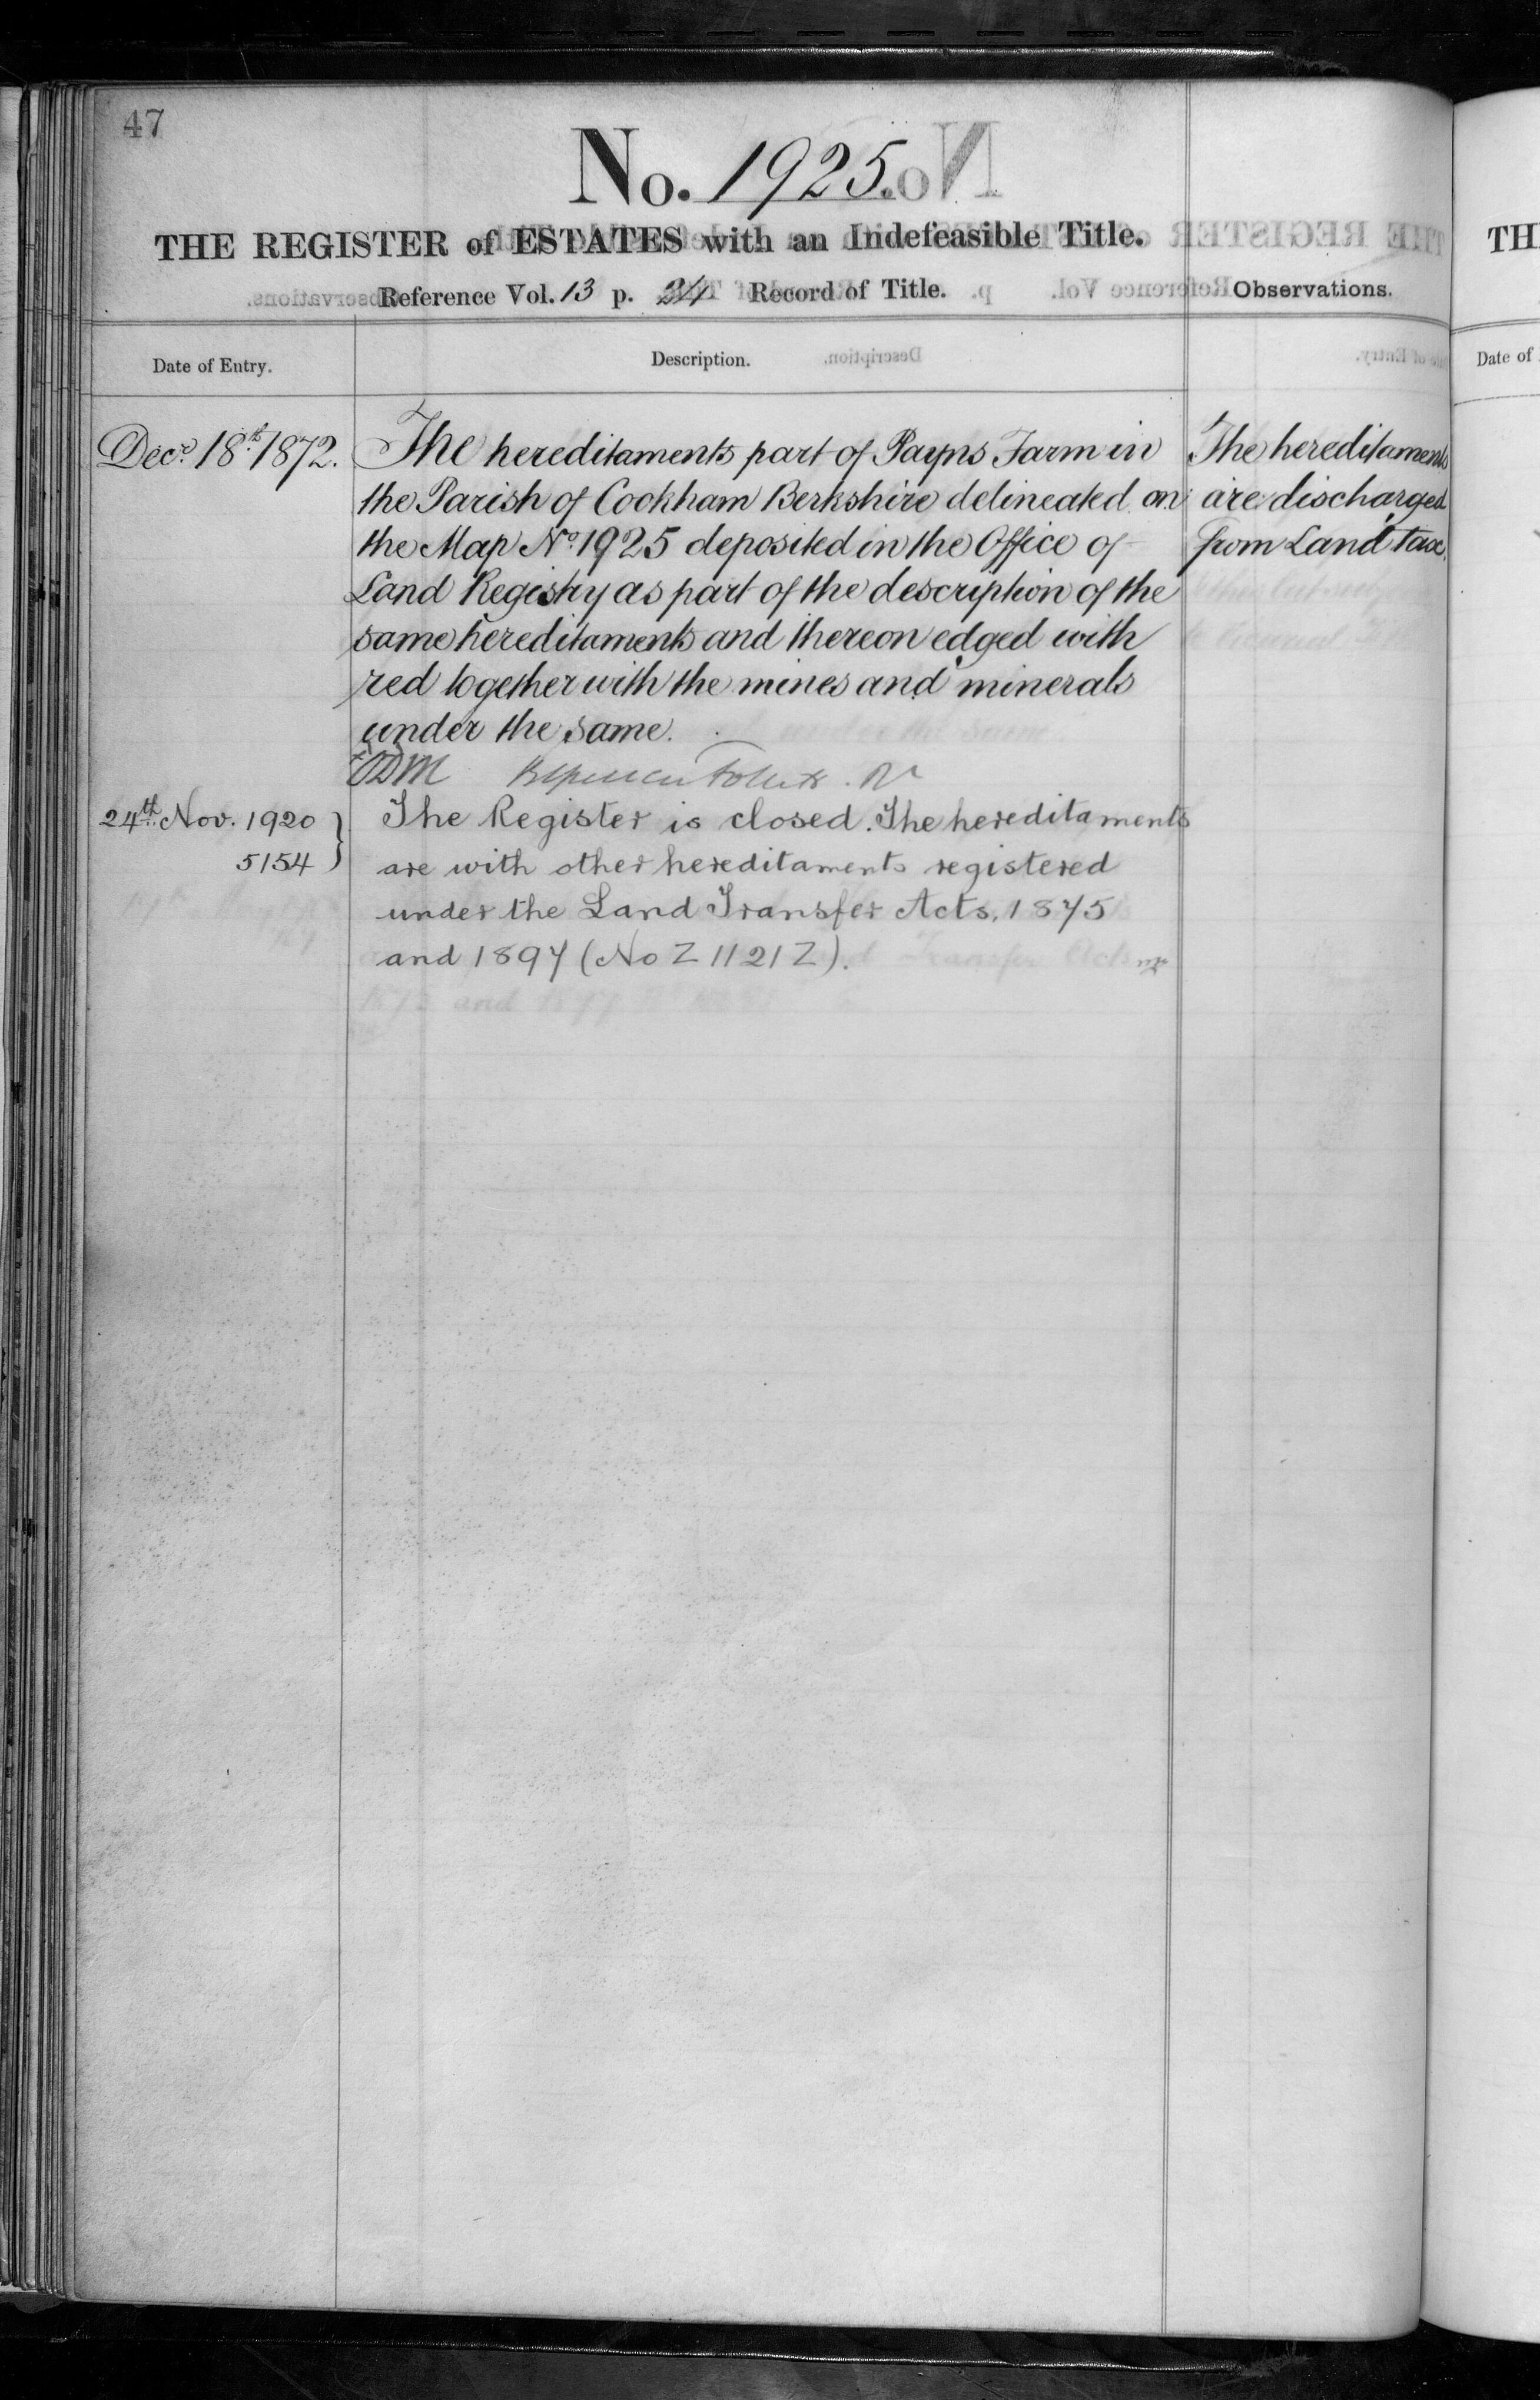 47
No. 1925.
THE REGISTER of ESTATES with an Indefeasible Title.
Reference Vol. 13 p. 24 Record of Title. Observations.
Date of Entry. Description.
Decr. 18th 1872. The hereditaments part of Payns Farm in
the Parish of Cookham Berkshire delineated on
the Map No. 1925 deposited in the Office of
Land Registry as part of the description of the
same hereditaments and thereon edged with
red together with the mines and minerals
under the same.
The hereditaments
are discharged
from Land tax.
24th Nov. 1920 }
5154
The Register is closed. The hereditaments
are with other hereditaments registered
under the Land Transfer Acts, 1875
and 1897 (No Z 1121 Z).
TH
Date of